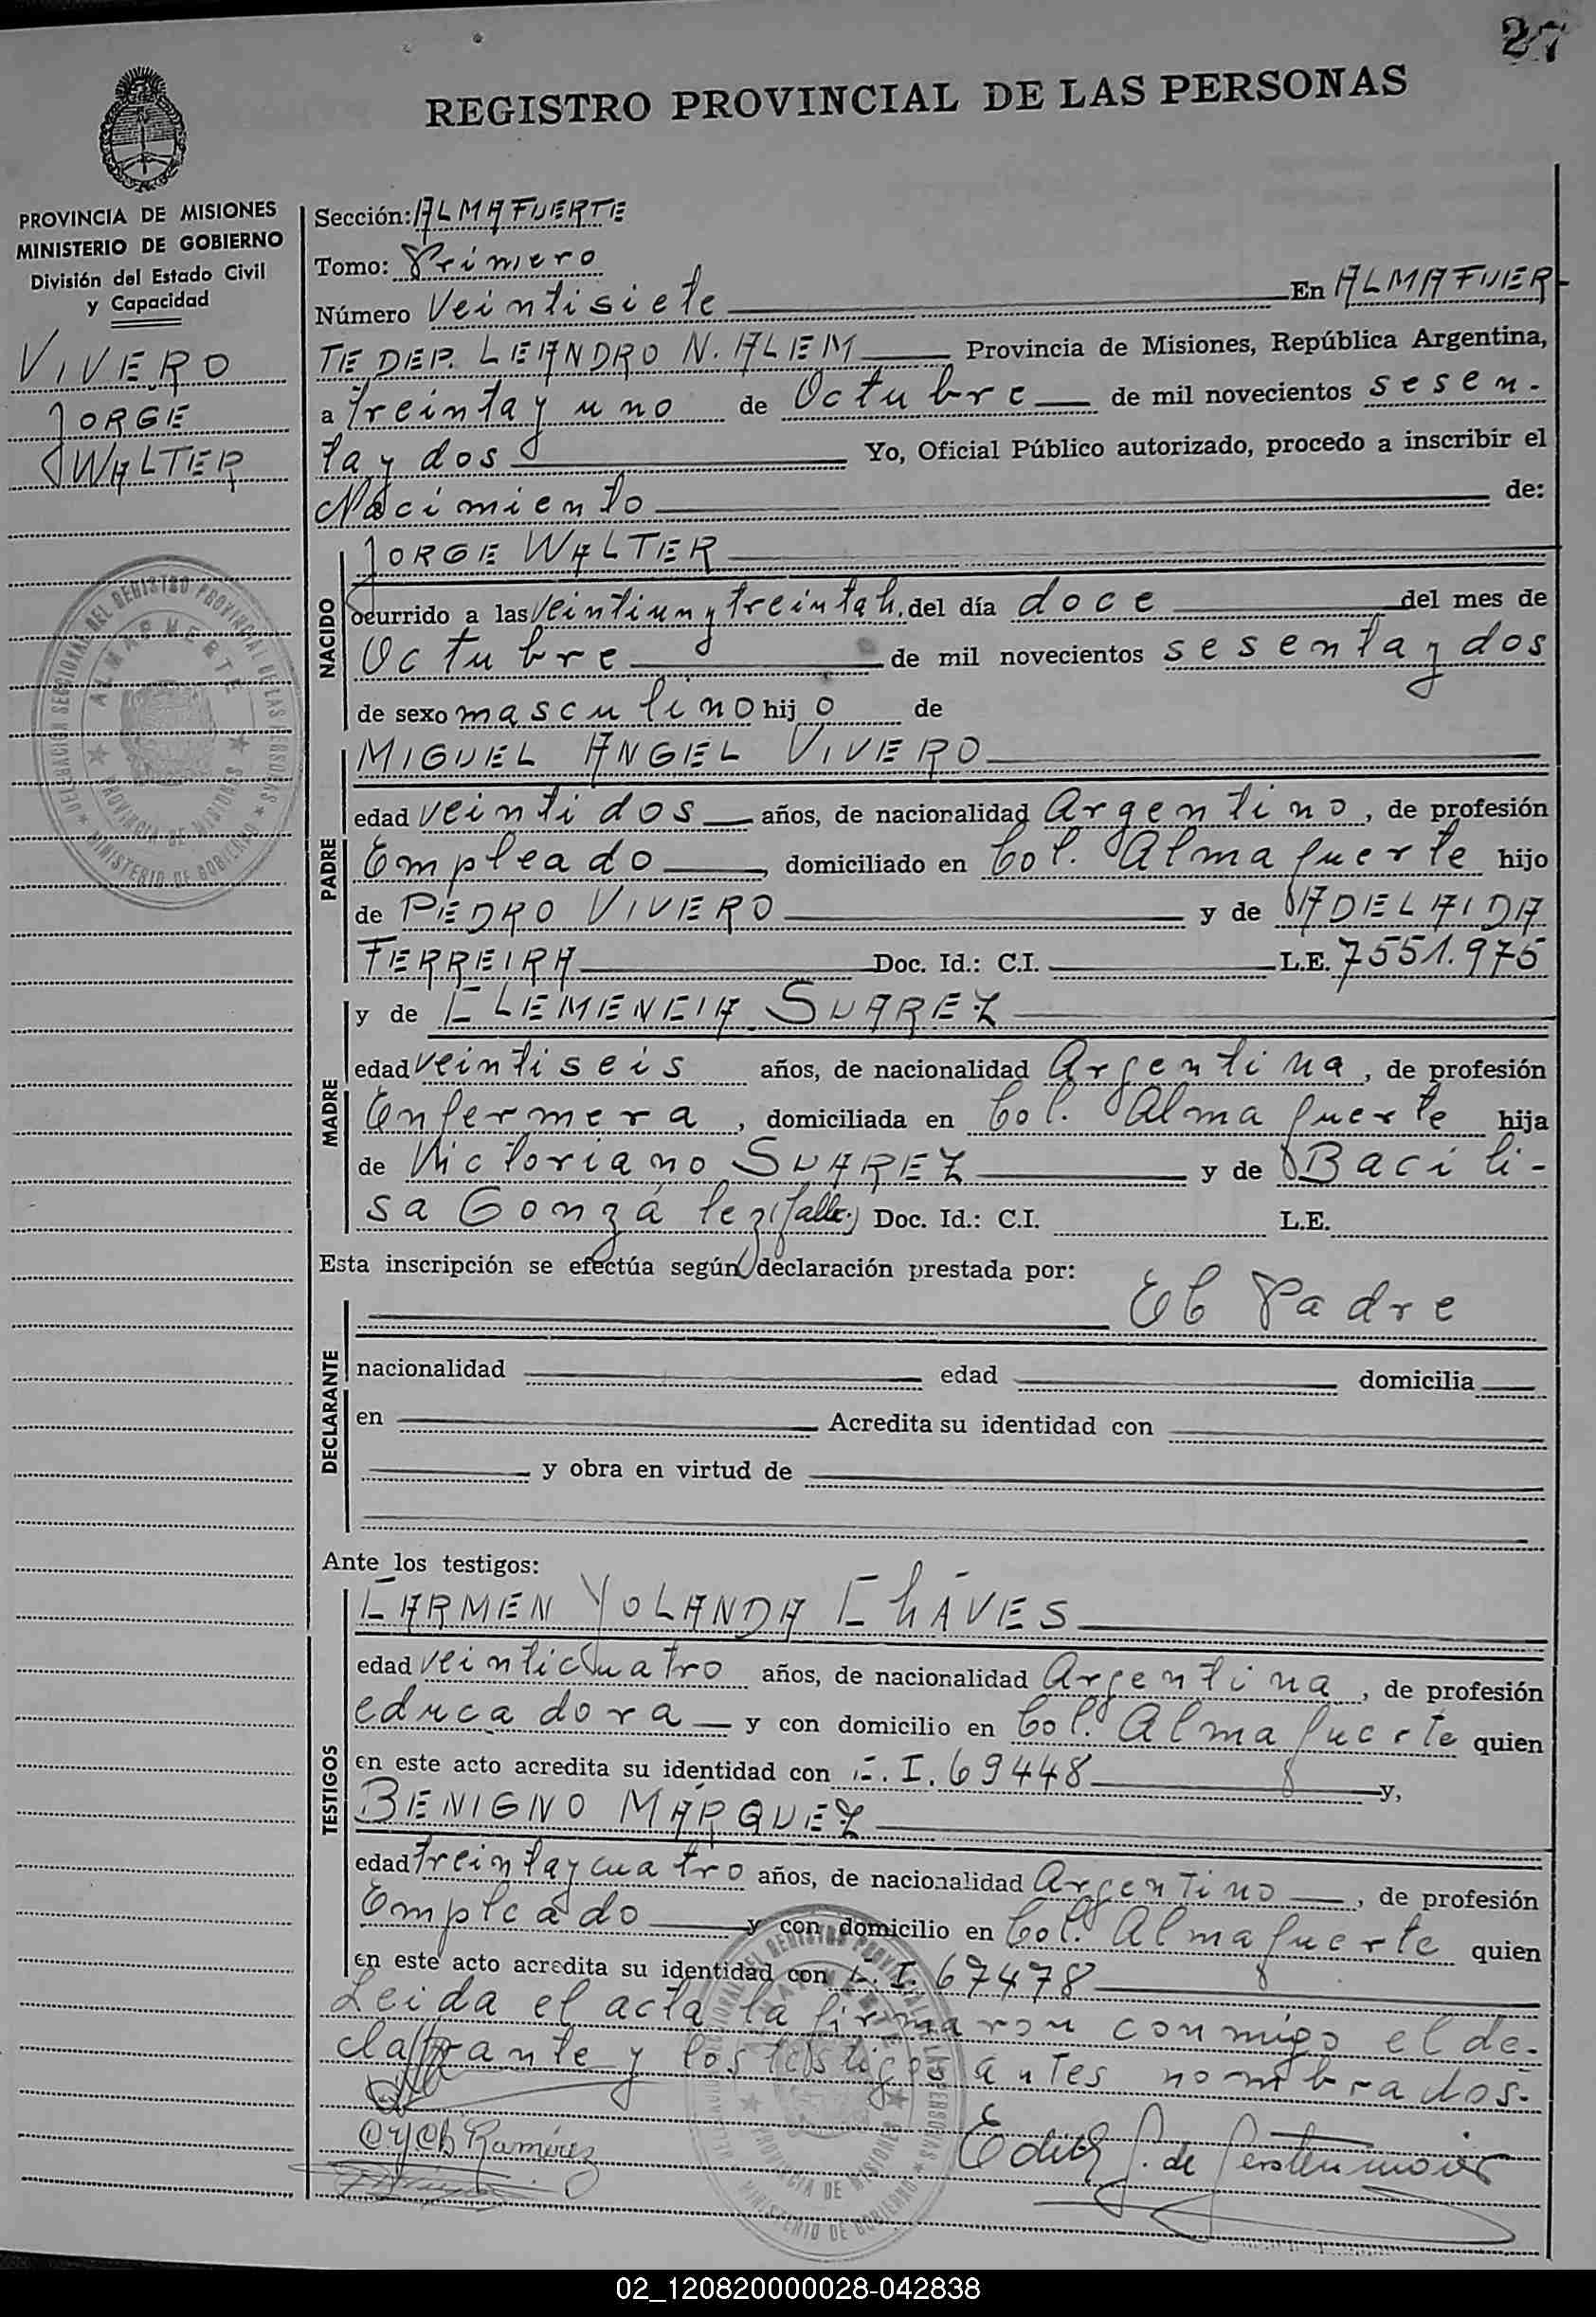 27
REGISTRO PROVINCIAL DE LAS PERSONAS
PROVINCIA DE MISIONES
MINISTERIO DE GOBIERNO
División del Estado Civil
y Capacidad
VIVERO
JORGE
WALTER
Sección: ALMAFUERTE
Tomo: Primero
Número Veintisiete En ALMAFUER-
TE DEP. LEANDRO N. ALEM Provincia de Misiones, República Argentina,
a treinta y uno de Octubre de mil novecientos sesen-
ta y dos Yo, Oficial Público autorizado, procedo a inscribir el
Nacimiento de:
NACIDO
JORGE WALTER
ocurrido a las veintiun y treinta h. del día doce del mes de
Octubre de mil novecientos sesenta y dos
de sexo masculino hijo de
PADRE
MIGUEL ANGEL VIVERO
edad veintidos años, de nacionalidad Argentino, de profesión
Empleado, domiciliado en Col. Almafuerte hijo
de PEDRO VIVERO y de ADELAIDA
FERREIRA Doc. Id.: C.I. L.E. 7551.975
MADRE
y de CLEMENCIA SUAREZ
edad veintiseis años, de nacionalidad Argentina, de profesión
Enfermera, domiciliada en Col. Almafuerte hija
de Victoriano SUAREZ y de Bacili-
sa González (falle.) Doc. Id.: C.I. L.E.
Esta inscripción se efectúa según declaración prestada por:
El Padre
DECLARANTE
nacionalidad edad domicilia
en Acredita su identidad con
y obra en virtud de
Ante los testigos:
TESTIGOS
CARMEN YOLANDA CHÁVES
edad veinticuatro años, de nacionalidad Argentina, de profesión
educadora y con domicilio en Col. Almafuerte quien
en este acto acredita su identidad con C.I. 69448 y,
BENIGNO MARQUEZ
edad treinta y cuatro años, de nacionalidad Argentino, de profesión
Empleado y con domicilio en Col. Almafuerte quien
en este acto acredita su identidad con C.I. 67478
Leida el acta la firmaron conmigo el de-
clarante y los testigos antes nombrados.
Ramirez
Edith G. de
DELEGACIÓN SECCIONAL DEL REGISTRO PROVINCIAL DE LAS PERSONAS
ALMAFUERTE
PROVINCIA DE MISIONES
MINISTERIO DE GOBIERNO
02_120820000028-042838